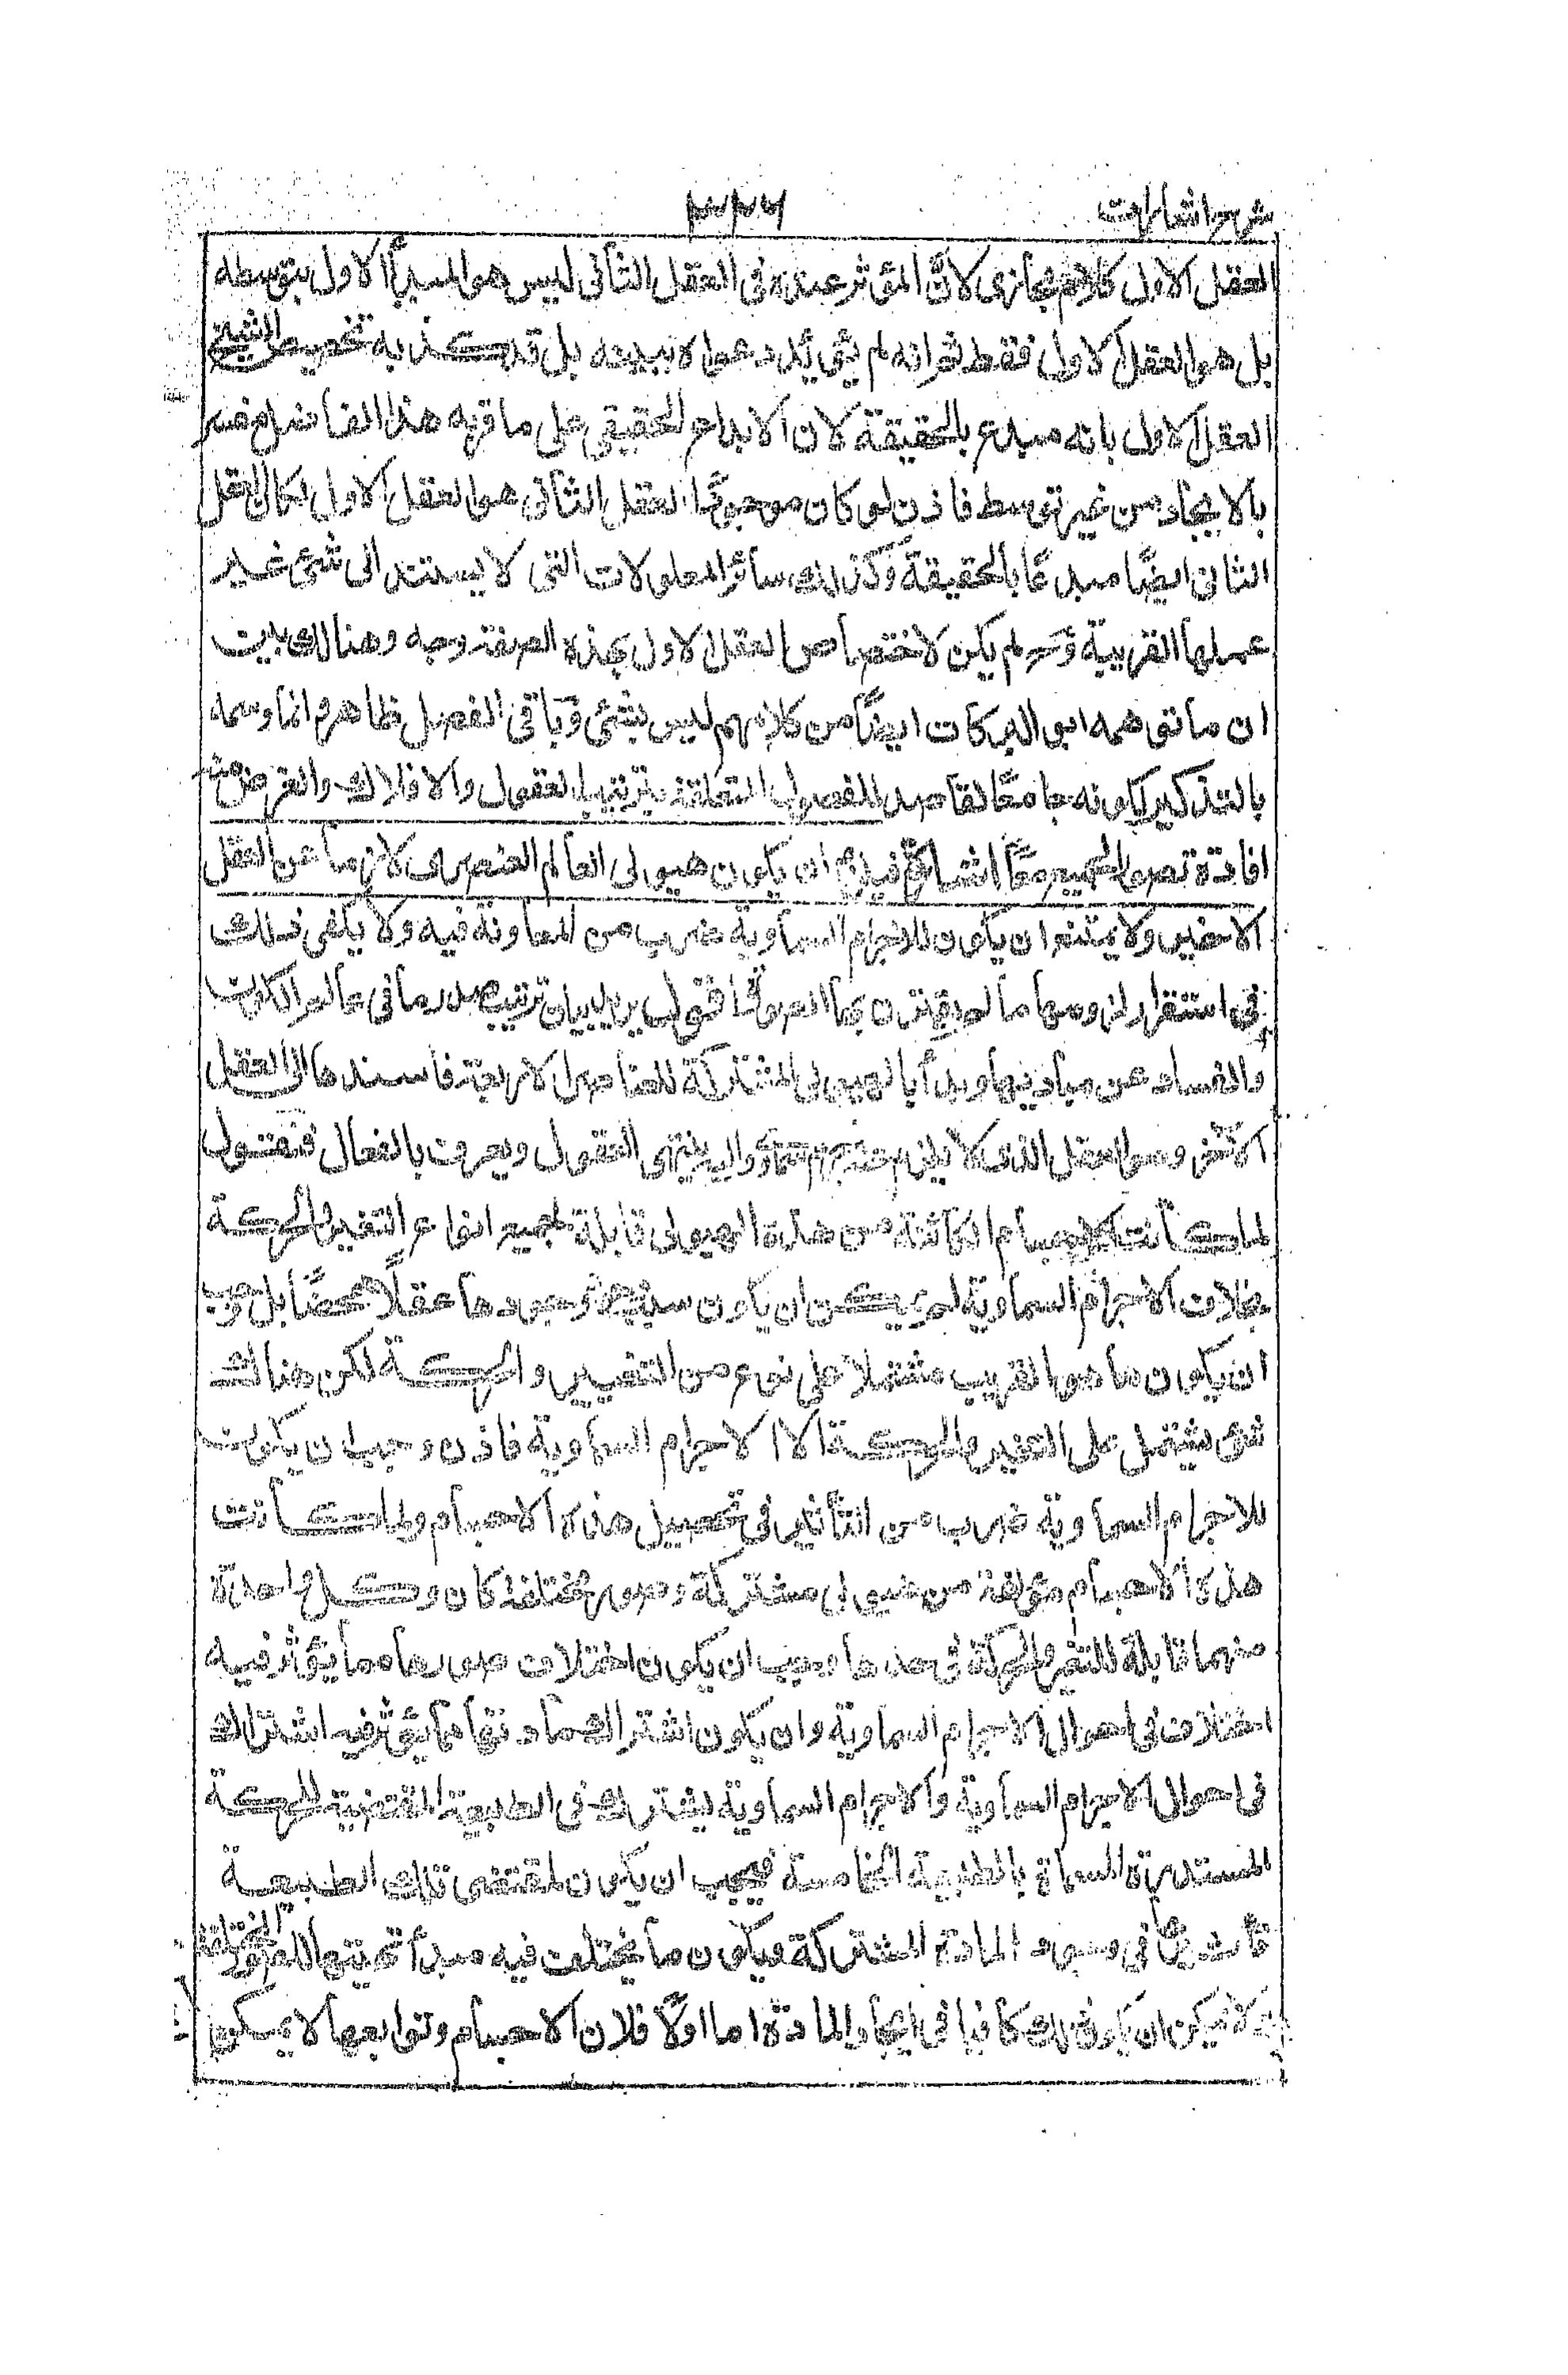 شرح اشارات ٣٢٦
العقل الاول كلام مجازى لانّ المؤثر عنده فى العقل الثانى ليس هو المبدأ الاول بتوسطه
بل هو العقل الاول فقط ثم انه لم يؤيد دعواه ببينه بل قد كذبه تخصيص الشيخ
العقل الاول بانه مبدع بالحقيقة لان الابداع الحقيقى على ما قربه هذا الفاضل وفسر
بالايجاد من غير توسط فاذن لو كان موجد العقل الثانى هو العقل الاول لكان العقل
الثانى ايضًا مبدعًا بالحقيقة وكذلك سائر المعلولات التى لا يستند الى شئ غير
عللها القريبة وح لم يكن لاختصاص العقل الاول بهذه الصفة وجه وهنالك يتبين
ان ما توهمه ابو البركات ايضًا من كلامهم ليس بشئ وباقى الفصل ظاهر وانما وسمه
بالتذكير لكونه جامعًا لمقاصد الفصول المتعلقة بترتيب العقول والافلاك والغرض منه
افادة تصور الجميع معًا اشارة فيجب ان يكون هيولى العالم العنصرى لازمًا عن العقل
الاخير ولا يمتنع ان يكون للاجرام السماوية ضرب من المعاونة فيه ولا يكفى ذلك
فى استقرار لزومها ما لم يقترن بها الصورة اقول يريد بيان ترتيب صدور ما فى عالم الكون
والفساد عن مباديها وبدأ بالهيولى المشتركة للعناصر الاربعة فاسندها الى العقل
الاخير وهو العقل الذى لا يلزم عنه جرم سماوى واليه ينتهى العقول ويعرف بالفعال فنقول
لما كانت الاجسام الكائنة من هذه الهيولى قابلة لجميع انواع التغير والحركة
بخلاف الاجرام السماوية لم يكن ان يكون سبب وجودها عقلًا محضًا بل وجب
ان يكون ما هو القريب مشتملا على نوع من التغيير والحركة لكن هناك
شئ يشتمل على التغير والحركة الا الاجرام السماوية فاذن وجب ان يكون
للاجرام السماوية ضرب من التأثير فى تحصيل هذه الاجسام ولما كانت
هذه الاجسام مؤلفة من هيولى مشتركة وصور مختلفة كان وكل واحدة
منهما قابلة للتغير والحركة فى حدها وجب ان يكون اختلاف صورها مما يؤثر فيه
اختلاف فى احوال الاجرام السماوية وان يكون اشتراك مادتها مما يؤثر فيه اشتراك
فى احوال الاجرام السماوية والاجرام السماوية يشترك فى الطبيعة المقتضية للحركة
المستديرة المسماة بالطبيعة الخامسة فيجب ان يكون لمقتضى تلك الطبيعة
تأثير فى وجود المادة المشتركة ويكون ما يختلف فيه مبدأ تهيئها للصور المختلفة
لا يمكن ان يكون ذلك كافيا فى ايجاد المادة اما اولًا فلان الاجسام وتوابعها لا يمكن